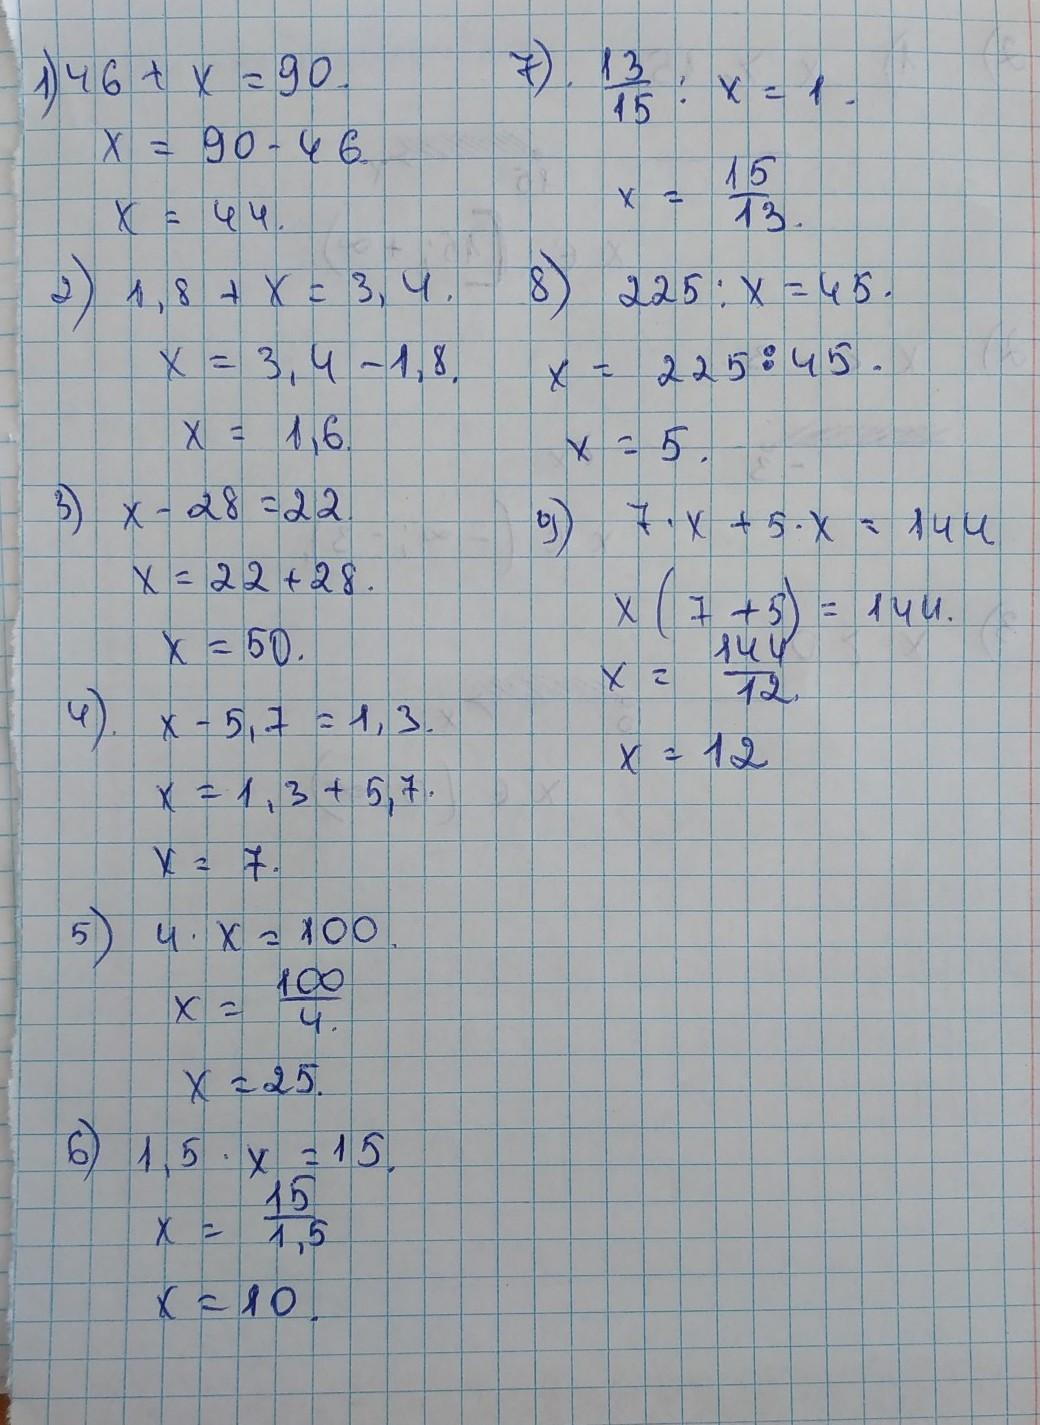 1) 46 + x = 90.
x = 90 - 46.
x = 44.
2) 1,8 + x = 3,4.
x = 3,4 - 1,8.
x = 1,6.
3) x - 28 = 22.
x = 22 + 28.
x = 50.
4). x - 5,7 = 1,3.
x = 1,3 + 5,7.
x = 7.
5) 4 · x = 100.
x = 100/4.
x = 25.
6) 1,5 · x = 15.
x = 15/1,5
x = 10.
7). 13/15 : x = 1.
x = 15/13.
8) 225 : x = 45.
x = 225 : 45.
x = 5.
9) 7 · x + 5 · x = 144
x (7 + 5) = 144.
x = 144/12.
x = 12